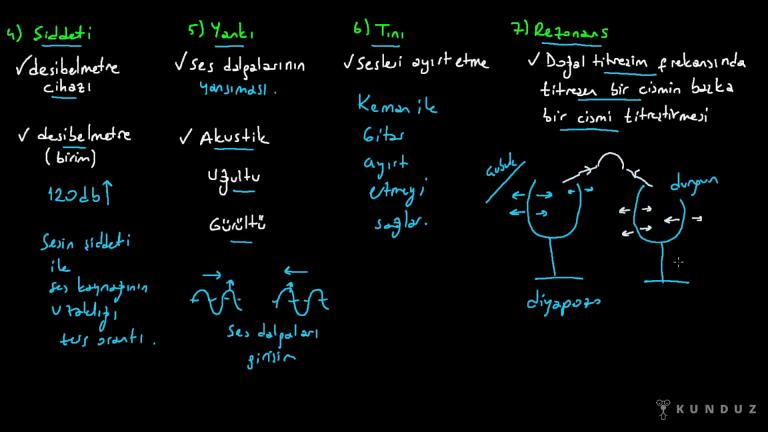 4) Şiddeti
✓ desibelmetre
cihazı
✓ desibelmetre
(birim)
120db↑
Sesin şiddeti
ile
ses kaynağının
uzaklığı
ters orantı.
5) Yankı
✓ Ses dalgalarının
yansıması.
✓ Akustik
Uğultu
Gürültü
Ses dalgaları
girişim
6) Tını
✓ Sesleri ayırt etme
Keman ile
Gitar
ayırt
etmeyi
sağlar.
7) Rezonans
✓ Doğal titreşim frekansında
titreşen bir cismin başka
bir cismi titreştirmesi
çubuk
durgun
diyapozo
KUNDUZ